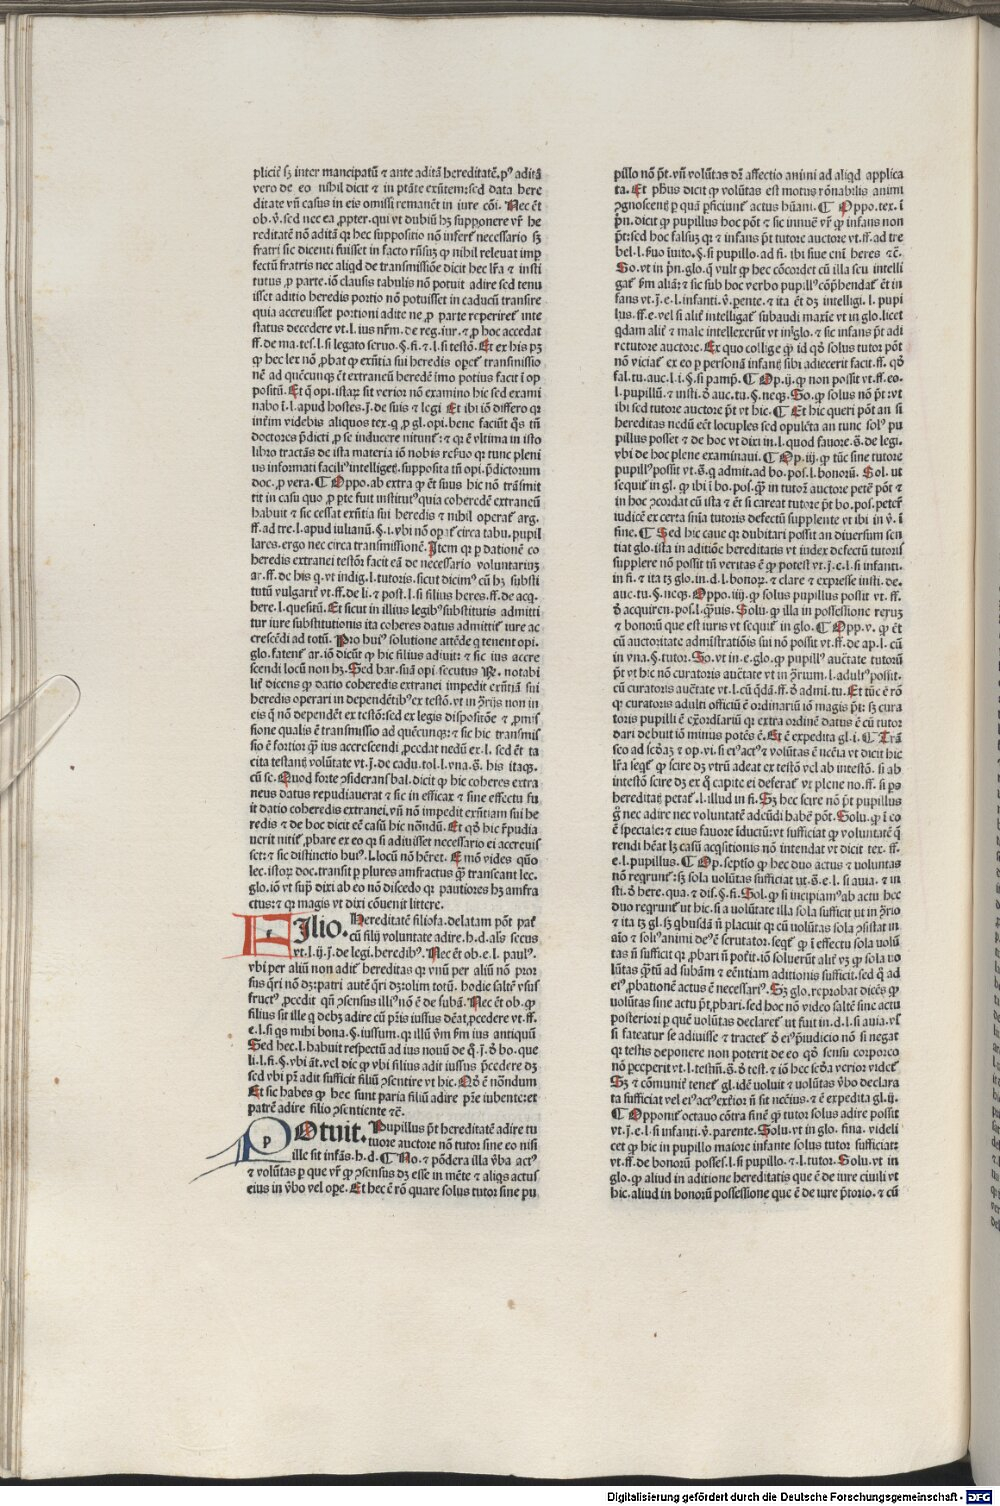 plicit̄ sꝫ inter mancipatū ⁊ ante aditā hereditatē.pꝰ aditā
vero de eo nihil dicit ⁊ in ptāte exn̄tem:sed data here
ditate vn̄ casus in eis omissi remanēt in iure cōi. Nec ēt
ob.v̄.sed nec ea ꝓpter.qui vt dubiū hꝫ supponere vr̄ he
reditatē nō aditā qꝛ hec suppositio nō infert̄ necessario sꝫ
fratri sic dicenti fuisset in facto rn̄sum ꝙ nihil relevat imp
fectū fratris nec aliqd de transmissiōe dicit hec lr̄a ⁊ insti
tutus ꝓ parte.iō clausis tabulis nō potuit adire sed tenu
isset aditio heredis portio nō potuisset in caducū transire
quia accreuisset portioni adite ne ꝓ parte reperiret̄ inte
status decedere vt.l.ius nr̄m.de reg.iur.⁊ ꝓ hoc accedat
ff.de ma.tes.l.si legato seruo.§.fi.⁊.l.si testō. Et ex his pꝫ
ꝙ hec lex nō ꝓbat ꝙ exn̄tia sui heredis opet̄ transmissio
nē ad quēcunqꝫ ēt extraneū heredē imo potius facit ī op
positū. Et q̄ opi.istaꝝ sit verior nō examino hic sed exami
nabo ī.l.apud hostes.j̄.de suis ⁊ legi Et ibi iō differo qꝛ
int̄im videbis aliquos tex.q ꝓ gl.opi.bene faciūt q̄s tn̄
doctores p̄dicti ꝓ se inducere nitunt̄:⁊ qꝛ ē vltima in isto
libro tractās de ista materia iō nobis reẜuo qꝛ tunc pleni
us informati faciliꝰ intelligetꝭ.supposita tn̄ opi.p̄dictorum
doc.ꝓ vera. ¶ Oppo.ab extra ꝙ ēt suus hic nō trāsmit
tit in casu quo ꝓ pte fuit institutꝰ quia coheredē extraneū
habuit ⁊ sic cessat exn̄tia sui heredis ⁊ nihil operat̄ arg.
ff.ad tre.l.apud iulianū.§.i.vbi nō opat̄ circa tabu.pupil
lares.ergo nec circa transmissionē. Item qꝛ p dationē co
heredis extranei testōr facit eā de necessario voluntarinꝫ
ar.ff.de his q.vt indig.l.tutoris.sicut dicimꝰ cū hꝫ substi
tutū vulgarit̄ vt.ff.de li.⁊ post.l.si filius heres.ff.de acq.
here.l.quesitū. Et sicut in illius legibꝰ substitutis admitti
tur iure substitutionis ita coheres datus admittit̄ iure ac
crescēdi ad totū. Pro huiꝰ solutione attēde q tenent opi.
glo.fatent̄ ar.iō dicūt ꝙ hic filius adiuit:⁊ sic ius accre
scendi locū non hꝫ. Sed bar.suā opi.secutus R̄. notabi
lit̄ dicens ꝙ datio coheredis extranei impedit exn̄tiā sui
heredis operari in dependētibꝰ ex testō.vt in ꝯ̄rijs non in
eis q̄ nō dependēt ex testō:sed ex legis dispositōe ⁊ ꝓmis
sione qualis ē transmissio ad quēcunqꝫ:⁊ sic hic transmis
sio ē fortior q̄ꝫ ius accrescendi ꝓcedat nedū ex.l.sed ēt ta
cita testantꝭ volūtate vt.j̄.de cadu.tol.l.vna.§. his itaqꝫ.
cū se. Quod forte ꝯsiderans bal.dicit ꝙ hic coheres extra
neus datus repudiauerat ⁊ sic in efficax ⁊ sine effectu fu
it datio coheredis extranei.vn̄ nō impedit exn̄tiam sui he
redis ⁊ de hoc dicit eē casū hic nōndū. Et qd̄ hic r̄pudia
uerit nitit̄ ꝓbare ex eo qꝛ si adiuisset necessario ei accreuis
set:⁊ sic distinctio huiꝰ.l.locū nō hēret. E mō vides quō
lec.istoꝝ doc.transit p plures amfractus q̄ꝫ transeant lec.
glo.iō vt sup̄ dixi ab eo nō discedo qꝛ pautiores hꝫ amfra
ctus:⁊ qꝛ magis vt dixi cōuenit littere.
FIlio. Hereditatē filiofa.delatam pōt pat̄
cū filij voluntate adire.h.d.als secus
vt.l.ij.j̄.de legi.heredibꝰ. Nec ēt ob.e.l. paulꝰ.
vbi per aliū non adit̄ hereditas qꝛ vnū per aliū nō pror
sus q̄ri nō dꝫ:patri autē q̄ri dꝫ:olim totū. hodie saltē vsus
fructꝰ ꝓcedit qn̄ ꝯsensus illiꝰ nō ē de subā. Nec ēt ob. ꝙ
filius sit ille q debꝫ adire cū p̄tis iussus dēat ꝓcedere vt.ff.
e.l.si qs mihi bona.§.iussum.qꝛ illū ẜm ẜm ius antiquū
Sed hec.l.habuit respectū ad ius nouū de q̄.j̄.d̄ bo.que
li.l.fi.§.vbi āt.vel dic ꝙ vbi filius adit iussus p̄cedere dꝫ
sed vbi pꝛ̄ adit sufficit filiū ꝯsentire vt hic. Qd̄ ē nōndum
Et sic habes ꝙ hec sunt paria filiū adire pr̄e iubente:et
patrē adire filio ꝯsentiente ⁊c̄.
POtuit. Pupillus p̄t hereditatē adire tu
tuore auctore nō tutor sine eo nisi
ille sit infās.h.d. ¶ No.⁊ pōdera illa v̄ba actꝰ
⁊ volūtas p que vr̄ ꝙ ꝯsensus dꝫ esse in mēte ⁊ aliqs actus
eius in v̄bo vel ope. Et hec ē rō quare solus tutor sine pu
pillo nō p̄t.vn̄ volūtas dr̄ affectio animi ad aliqd applica
ta. Et phus dicit ꝙ volūtas est motus rōnabilis animi
ꝯgnoscentꝭ p quā ꝑficiunt̄ actus hūani. ¶ Oppo.tex.ī
p̄n.dicit ꝙ pupillus hoc pōt ⁊ sic innuē vr̄ ꝙ infans non
p̄t:sed hoc falsuꝫ qꝛ ⁊ infans p̄t tutore auctore vt.ff.ad tre
bel.l.ẜuo iuito.§.si pupillo.ad fi.ibi siue eni heres ⁊c̄.
So.vt in p̄n.glo.q̄ vult ꝙ hec cōcordet cū illa seu intelli
gat̄ ẜm aliā:⁊ sic sub hoc verbo pupillꝰ cōp̄hendat̄ ēt in
fans vt.j̄.e.l.infanti.v̄.pente.⁊ ita ēt dꝫ intelligi.l. pupi
lus.ff.e.vel si alit̄ intelligat̄ subaudi maxīe vt in glo.licet
qdam alit̄ ⁊ male intellexerūt vt in glo.⁊ sic infans p̄t adi
re tutore auctore. Ex quo collige q̄ꝫ id qd̄ solus tutor pōt
nō viciat̄ ex eo ꝙ personā infantꝭ sibi adiecerit facit.ff. qd̄
fal.tu.auc.l.i.§.si pamp̄. ¶ Op.ij.ꝙ non possit vt.ff.eo.
l.pupillū.⁊ insti.d̄ auc.tu.§.neqꝫ. So.ꝙ solus nō p̄t:vt
ibi sed tutore auctore p̄t vt hic. ¶ Et hic queri pōt an si
hereditas nedū eēt locuples sed opulēta an tunc solꝰ pu
pillus posset ⁊ de hoc vt dixi in.l.quod fauore.s̄.de legi.
vbi de hoc plene examinaui. ¶ Op.iij.ꝙ tūc sine tutore
pupillꝰ possit vt.s̄.q admit.ad bo.pos.l.bonorū. Sol. ut
sequit̄ in gl.ꝙ ibi ī bo.pos.q̄ꝫ in tutorē auctore petē pōt ⁊
in hoc ꝯcordat cū ista ⁊ ēt si careat tutore p̄t bo.pos.peter̄
iudicē ex certa sniā tutoris defectū supplente vt ibi in v̄. ī
fine. ¶ Sed hic caue qꝛ dubitari possit an diuersum sen
tiat glo.ista in aditiōe hereditatis vt iudex defectū tutoris
supplere nō possit tn̄ veritas ē ꝙ potest vt.j̄.e.l.si infanti.
in fi.⁊ ita tꝫ glo.in.d.l.bonoꝝ.⁊ clare ⁊ expresse insti.de.
auc.tu.§.neqꝫ. Oppo.iiij.ꝙ solus pupillus possit vt. ff.
d̄ acquiren.pos.l.q̄uis. Solu.ꝙ illa in possessione reruꝫ
⁊ bonorū que est iuris vt sequit̄ in glo. ¶ Opp.v. ꝙ ēt
cū auctoritate adm̄strationis sui nō possit vt.ff.de ap.l. cū
in vna.§.tutor. So.vt in.e.glo.ꝙ pupillꝰ auc̄tate tutorū
p̄t vt hic nō curatoris auc̄tate vt in ꝯ̄rium.l.adultꝰ possit.
cū curatoris auc̄tate vt.l.cū qdā.ff.d̄ admi.tu. Et tūc ē rō
qꝛ curatoris adulti officiū ē ordinariū iō magis p̄t: sꝫ cura
toris pupilli ē extraordīariū qꝛ extra ordinē datus ē cū tutor
dari debuit iō minus potēs ē. Et ē expedita gl.i. ¶ Trā
seo ad scd̄aꝫ ⁊ op.vi.si eiꝰ actꝰ ⁊ volūtas ē nccīa vt dicit hic
lr̄a seqt̄ ꝙ scire dꝫ vtrū adeat ex testō vel ab intestō. si ab
intestō scire dꝫ ex q̄ capite ei deferat̄ vt plene no.ff. si ps
hereditatꝭ petat̄.l.illud in fi. Sꝫ hec scire nō p̄t pupillus
g̊ nec adire nec voluntatē adeūdi habē pōt. Solu.ꝙ ī eo
ē speciale:⁊ eius fauore iductū:vt sufficiat ꝙ voluntatē q̄
rendi hēat lꝫ casū acqsitionis nō intendat vt dicit tex. ff.
e.l.pupillus. ¶ Op.septīo ꝙ hec duo actus ⁊ voluntas
nō reqrunt̄:sꝫ sola volūtas sufficiat ut.s̄.e.l.si auia. ⁊ in
sti.d̄ here.qua.⁊ dif.§.fi. Sol.ꝙ si incipiamꝰ ab actu hec
duo reqrunt̄ ut hic.si a volūtate illa sola sufficit ut in ꝯ̄rio
⁊ ita tꝫ gl.sꝫ qbusdā n̄ placuit qꝛ cū volūtas sola ꝯsistat in
aīo ⁊ soliꝰ animi deꝰ ē scrutator.seqt̄ ꝙ ī effectu sola volū
tas n̄ sufficit qꝛ ꝓbari n̄ pōt̄it.iō soluerūt alit̄ vꝫ ꝙ sola vo
lūtas q̄tū ad subam ⁊ eēntiam aditionis sufficit.sed q̄ ad
eiꝰ ꝓbationē actus ē necessariꝰ. Sꝫ glo.reprobat dicēs ꝙ
volūtas sine actu p̄t ꝓbari.sed hoc nō video saltē sine actu
posteriori p quē volūtas declaret̄ ut fuit in.d.l.si auia.vl̄
si fateatur se adiuisse ⁊ tractet̄ d̄ eiꝰ p̄iudicio nō si negat
qꝛ testis deponere non poterit de eo qd̄ sensu corporeo
nō ꝑceperit vt.l.testiū.s̄.d̄ test.⁊ iō hec scd̄a verior videt̄
Sꝫ ⁊ cōmunit̄ tenet̄ gl.idē voluit ⁊ uolūtas v̄bo declara
ta sufficiat vel eiꝰ actꝰ ext̄ior n̄ sit nccīus.⁊ ē expedita gl.ij.
¶ Opponit̄ octauo cōtra finē ꝙ tutor solus adire possit
vt.j̄.e.l.si infanti.v̄.parente. Solu.vt in glo. fina. videli
cet ꝙ hic in pupillo maiore infante solus tutor sufficiat:
vt.ff.de bonorū posses.l.si pupillo.⁊.l.tutor. Solu.vt in
glo.ꝙ aliud in aditione hereditatis que ē de iure ciuili vt
hic.aliud in bonorū possessione que ē de iure p̄torio.⁊ cū
Digitalisierung gefördert durch die Deutsche Forschungsgemeinschaft - DFG